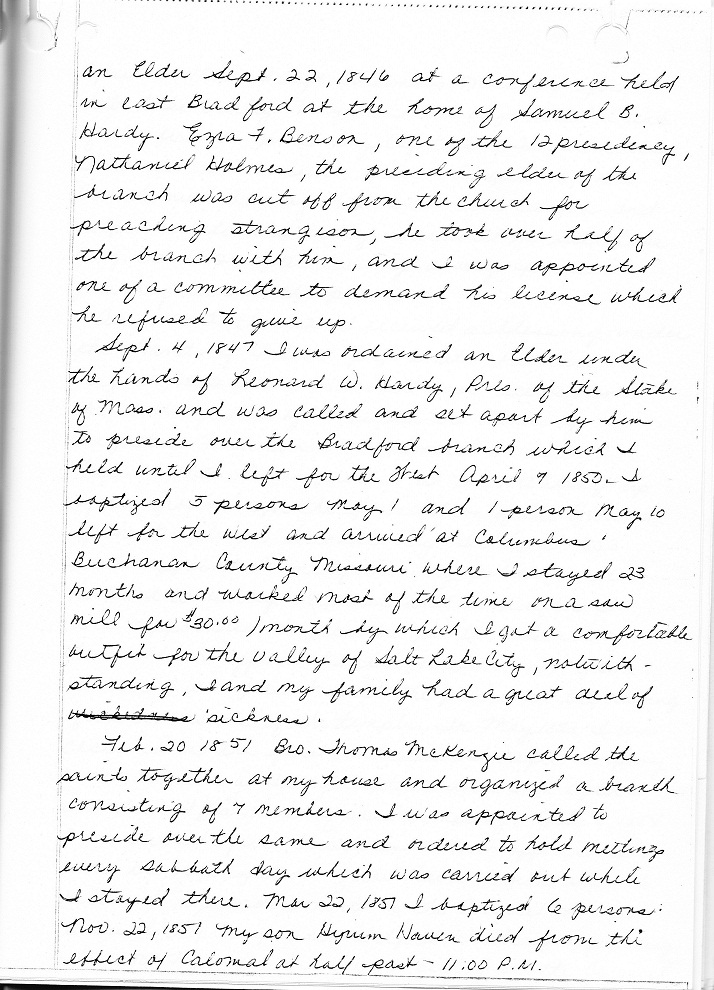 an Elder Sept. 22, 1846 at a conference held
in east Bradford at the home of Samuel B.
Hardy. Ezra F. Benson, one of the 12 presidency,
Nathaniel Holmes, the presiding elder of the
branch was cut off from the church for
preaching strangison, he took over half of
the branch with him, and I was appointed
one of a committee to demand his license which
he refused to give up.
Sept. 4, 1847 I was ordained an Elder under
the hands of Leonard W. Hardy, Pres. of the Stake
of Mass. and was called and set apart by him
to preside over the Bradford branch which I
held until I left for the West April 9 1850. I
baptized 5 persons May 1 and 1 person May 10
left for the west and arrived at Columbus
Buchanan County Missouri where I stayed 23
months and worked most of the time on a saw
mill for $30.00 / month by which I got a comfortable
outfit for the valley of Salt Lake City, notwith-
standing, I and my family had a great deal of
wickedness sickness.
Feb. 20 1851 Bro. Thomas McKenzie called the
saints together at my house and organized a branch
consisting of 7 members. I was appointed to
preside over the same and ordered to hold meetings
every sabbath day which was carried out while
I stayed there. Mar 22, 1851 I baptized 6 persons.
Nov. 22, 1851 my son Hyrum Haven died from the
effect of Calomal at half past - 11:00 P.M.